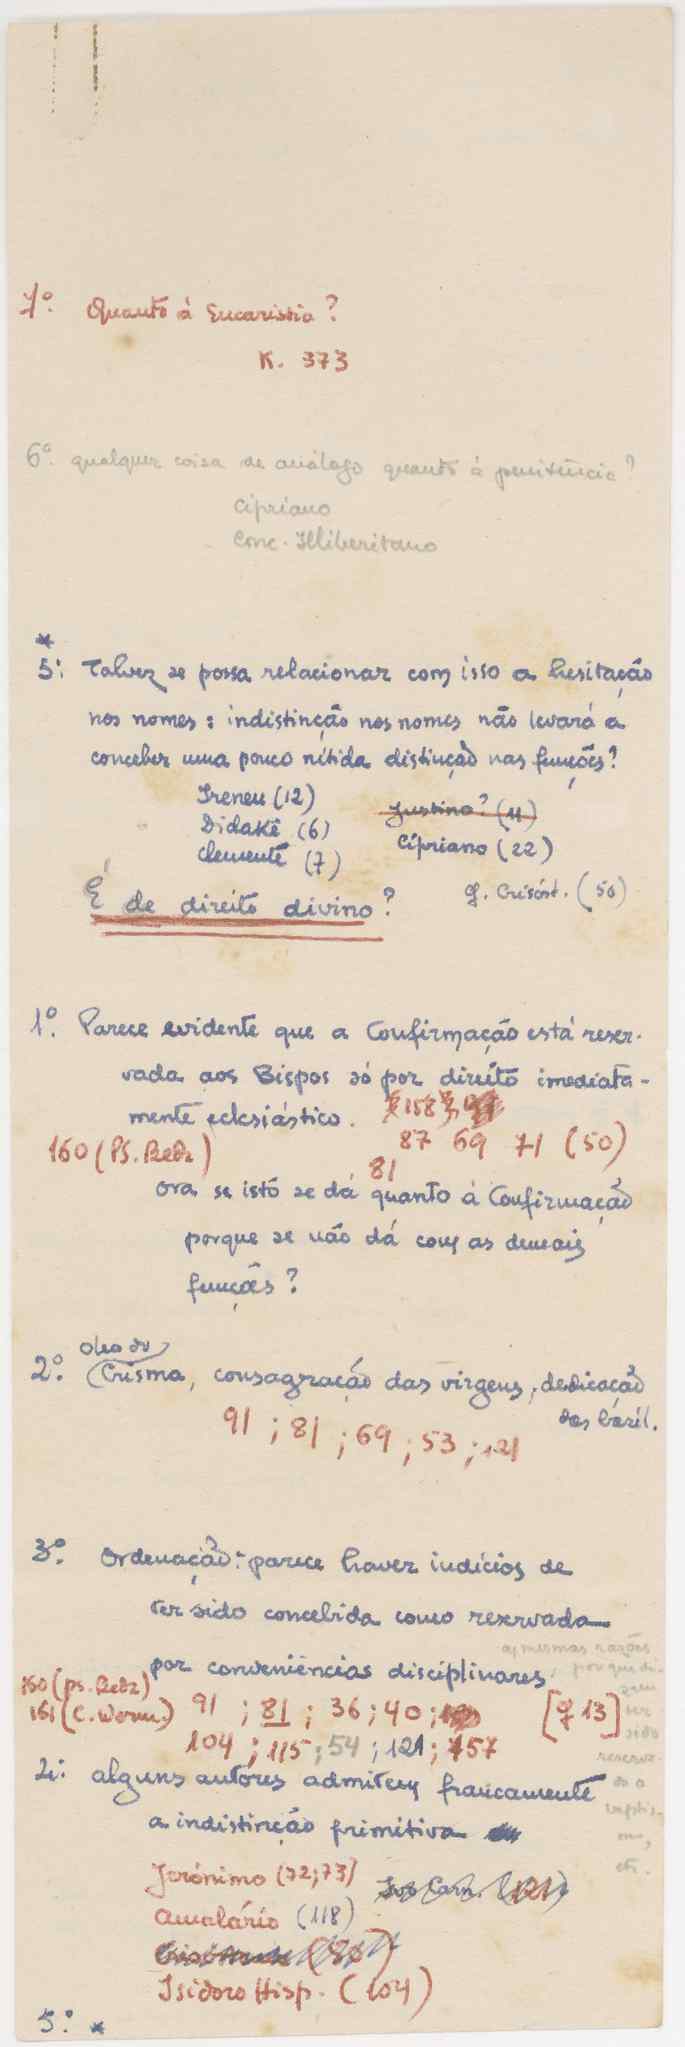 7º. Quanto à Eucaristia?
K. 373
6º. qualquer coisa de análogo quanto à penitência?
Cipriano
Conc. Illiberitano
*
5: Talvez se possa relacionar com isso a hesitação
nos nomes: indistinção nos nomes não levará a
conceber uma pouco nítida distinção nas funções?
Ireneu (12)
Justino? (11)
Didakê (6)
Cipriano (22)
Clemente (7)
É de direito divino?
Crisóst. (50)
1º. Parece evidente que a Confirmação está reser-
vada aos Bispos só por direito imediata-
mente eclesiástico.
158
160 (Ps. Beda)
87 69 71 (50)
81
Ora se isto se dá quanto à Confirmação
porque se não dá com as demais
funções?
óleo do
2º. Crisma, consagração das virgens, dedicação
das basil.
91 ; 81 ; 69 ; 53 ; 121
3º. Ordenação: parece haver indícios de
ter sido concebida como reservada
por conveniências disciplinares
as mesmas razões
porque di-
zem
ter
sido
reserva-
do o
baptis-
mo,
etc.
160 (Ps. Beda)
161 (C. Worm.)
91 ; 81 ; 36 ; 40 ;
[q 13]
104 ; 115 ; 54 ; 121 ; 157
4: alguns autores admitem francamente
a indistinção primitiva
Jerónimo (72; 73)
Ivo Carn. (121)
Amalário (118)
Isidoro Hisp. (104)
5: *